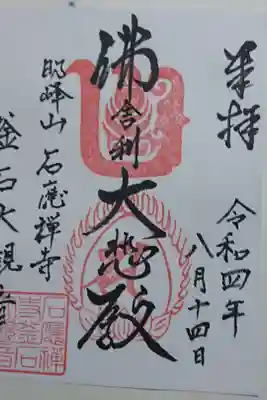 奉拝
令和四年
八月十四日
佛舎利
大悲殿
明峰山 石應禅寺
釜石大観音
石應禅
寺釜石